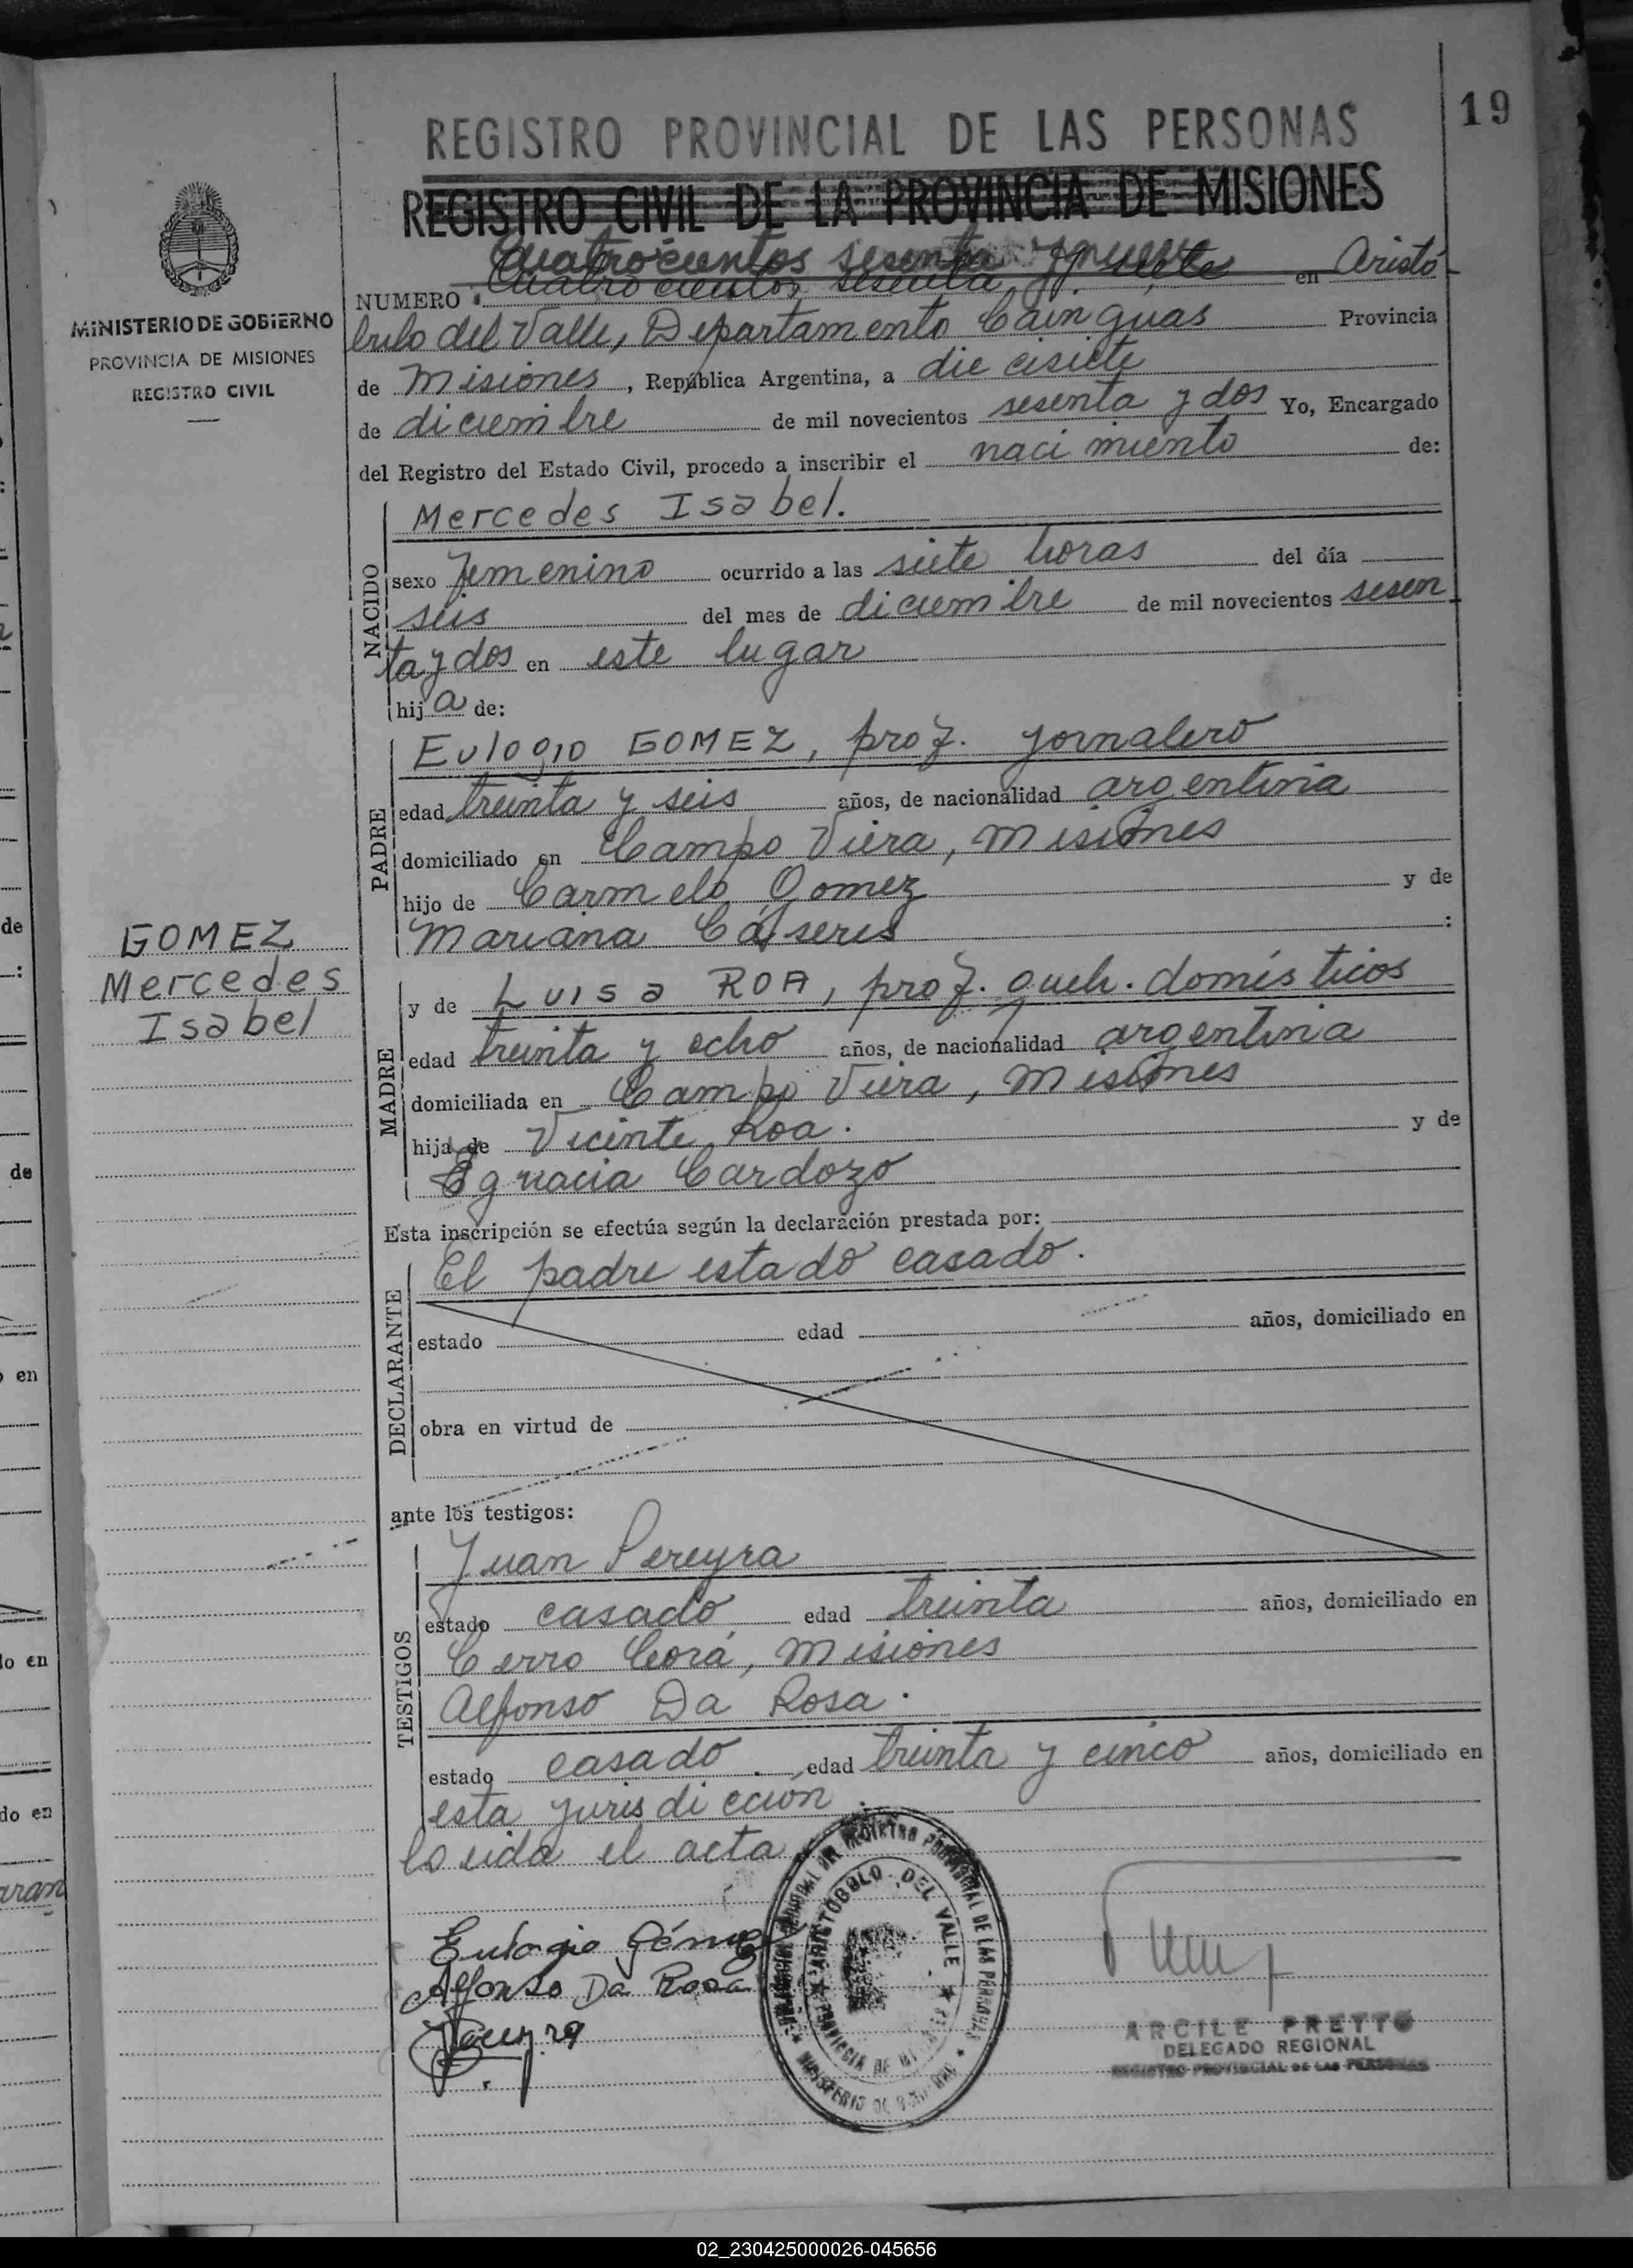 19
REGISTRO PROVINCIAL DE LAS PERSONAS
REGISTRO CIVIL DE LA PROVINCIA DE MISIONES
MINISTERIO DE GOBIERNO
PROVINCIA DE MISIONES
REGISTRO CIVIL
Cuatrocientos sesenta y nueve
NUMERO Cuatro cientos sesenta y siete en Aristó
bulo del Valle, Departamento Cainguas Provincia
de Misiones, República Argentina, a die cisiete
de diciembre de mil novecientos sesenta y dos Yo, Encargado
del Registro del Estado Civil, procedo a inscribir el naci miento de:
NACIDO
Mercedes Isabel.
sexo femenino ocurrido a las siete horas del día
seis del mes de diciembre de mil novecientos sesen
ta y dos en este lugar
hija de:
PADRE
Eulogio GOMEZ, prof. jornalero
edad treinta y seis años, de nacionalidad argentina
domiciliado en Campo Viera, Misiones
hijo de Carmelo Gomez y de
Mariana Cáseres :
GOMEZ
Mercedes
Isabel
MADRE
y de Luisa ROA, prof. queh. domésticos
edad treinta y ocho años, de nacionalidad argentina
domiciliada en Campo Viera, Misiones
hija de Vicente Roa. y de
Egnacia Cardozo
Esta inscripción se efectúa según la declaración prestada por:
DECLARANTE
El padre estado casado.
estado edad años, domiciliado en
obra en virtud de
ante los testigos:
TESTIGOS
Juan Pereyra
estado casado edad treinta años, domiciliado en
Cerro Corá, Misiones
Alfonso Da Rosa.
estado casado. edad treinta y cinco años, domiciliado en
esta jurisdicción.
Leida el acta
Eulogio Gómez
Alfonso Da Rosa
ARISTOBULO DEL VALLE
REGISTRO PROVINCIAL DE LAS PERSONAS
ARCILE PRETTO
DELEGADO REGIONAL
REGISTRO PROVINCIAL DE LAS PERSONAS
de
:
de
en
lo en
do en
02_230425000026-045656